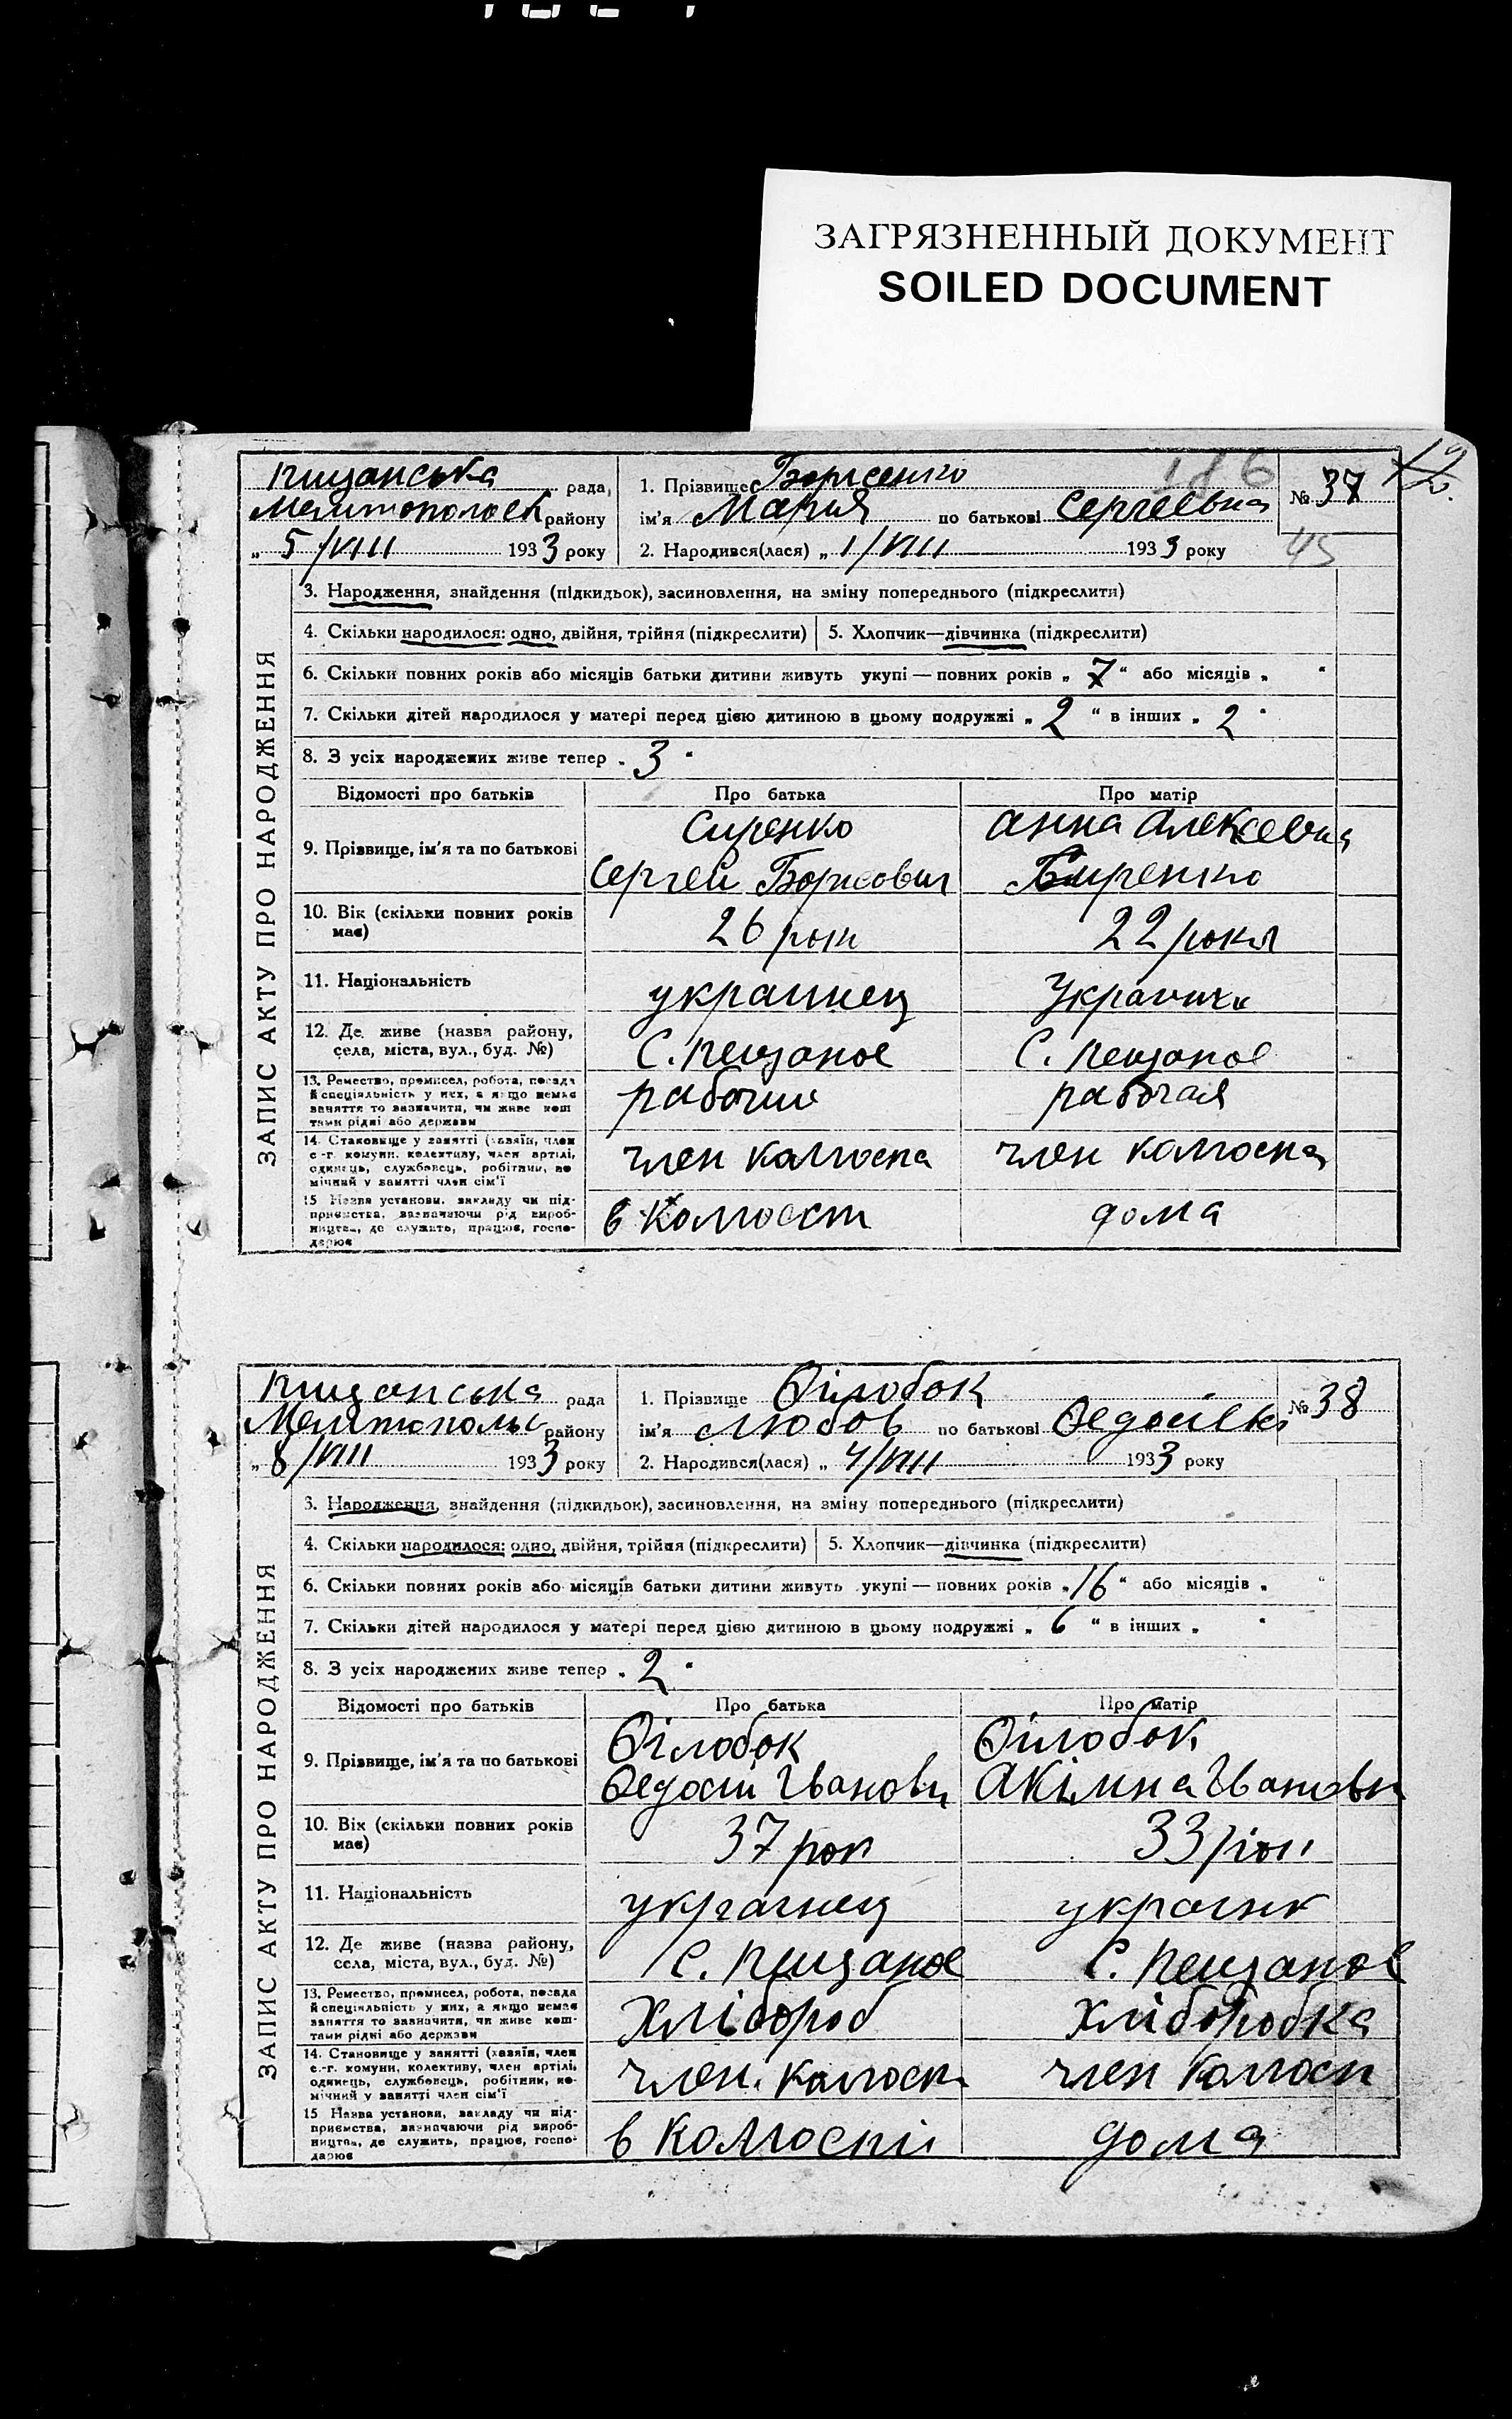 ЗАГРЯЗНЕННЫЙ ДОКУМЕНТ
SOILED DOCUMENT
186
12
Пищанська рада
1. Прізвище
№ 37
района району
ім'я Мария по батькові Сергеевна
„ 5/VIII 1933 року
2. Народився(лася) „ 1/VIII 1933 року
45
ЗАПИС АКТУ ПРО НАРОДЖЕННЯ
3. Народження, знайдення (підкидьок), засиновлення, на зміну попереднього (підкреслити)
4. Скільки народилося: одно, двійня, трійня (підкреслити)
5. Хлопчик—дівчинка (підкреслити)
6. Скільки повних років або місяців батьки дитини живуть укупі — повних років „ 7 “ або місяців „ “
7. Скільки дітей народилося у матері перед цією дитиною в цьому подружжі „ 2 “ в інших „ 2 “
8. З усіх народжених живе тепер „ 3 “
Відомості про батьків
Про батька
Про матір
9. Прізвище, ім'я та по батькові
Сиренко
Сергей Борисович
Анна Алексевна
Сиренко
10. Вік (скільки повних років має)
26 рок
22 рока
11. Національність
украинец
Украинка
12. Де живе (назва району, села, міста, вул., буд. №)
С. Пещаное
С. Пещаное
13. Ремество, промисел, робота, посада й спеціяльність у них, а якщо немає заняття то зазначити, чи живе коштами рідні або держави
рабочий
рабочая
14. Становище у занятті (хазяїн, член с.-г. комуни, колективу, член артілі, одинець, службовець, робітник, помічний у занятті член сім'ї
член колгоспа
член колгоспа
15 Назва установи, закладу чи підприємства, зазначаючи рід виробництва, де служить, працює, господарює
в колгоспи
дома
Пищанська рада
1. Прізвище Білобок
№ 38
Мелитопольс району
ім'я Любов по батькові
„ 8/VIII 1933 року
2. Народився(лася) „ 4/VIII 1933 року
ЗАПИС АКТУ ПРО НАРОДЖЕННЯ
3. Народження, знайдення (підкидьок), засиновлення, на зміну попереднього (підкреслити)
4. Скільки народилося: одно, двійня, трійня (підкреслити)
5. Хлопчик—дівчинка (підкреслити)
6. Скільки повних років або місяців батьки дитини живуть укупі — повних років „ 16 “ або місяців „ “
7. Скільки дітей народилося у матері перед цією дитиною в цьому подружжі „ 6 “ в інших „ “
8. З усіх народжених живе тепер „ 2 “
Відомості про батьків
Про батька
Про матір
9. Прізвище, ім'я та по батькові
Білобок
Федосій Іванови
Білобок
Акімна Івановн
10. Вік (скільки повних років має)
37 рок
33 рок
11. Національність
украинец
украинк
12. Де живе (назва району, села, міста, вул., буд. №)
С. Пещаное
С. Пещаное
13. Ремество, промисел, робота, посада й спеціяльність у них, а якщо немає заняття то зазначити, чи живе коштами рідні або держави
Хлібороб
Хліборобка
14. Становище у занятті (хазяїн, член с.-г. комуни, колективу, член артілі, одинець, службовець, робітник, помічний у занятті член сім'ї
член. колгосп
член колгосп
15 Назва установи, закладу чи підприємства, зазначаючи рід виробництва, де служить, працює, господарює
в колгоспі
дома